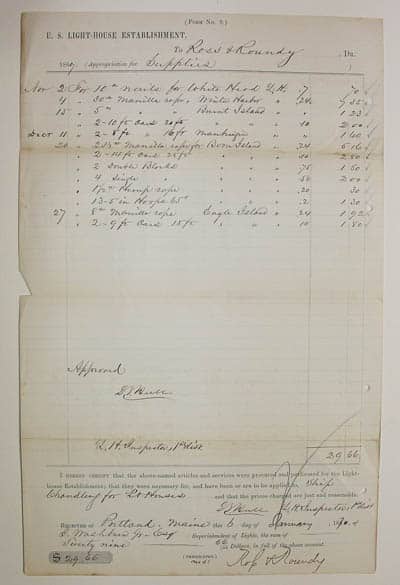 (Form No. 9.)
U. S. LIGHT-HOUSE ESTABLISHMENT,
To Ross & Roundy, Dr.
(Appropriation for Supplies)
Nov 2 For 10 lbs nails for White Head L.H. 7 70
4 " 30 lbs Manilla rope, " 24
15 " 5 lbs " " Burnt Island " 1 23
" 2-10 ft Oars 20 ft " " 10 2 00
11 " 2-8 ft " 16 ft Manhegin " " 1 60
20 " Manilla rope for " 24 5 16
" 2-14 ft Oars 28 ft " " " 10 2 80
" 2 Double Blocks " " 75 1 50
" 4 Single " " " 50 2 00
" rope " " 20 30
" Hoops 65 " " 2 1 30
27 " 8 lbs Manilla rope Eagle Island " 24 1 92
" 2-9 ft Oars 18 ft " " 10 1 80
Approved
L. H. Inspector, 1st Dist
29 66
I HEREBY CERTIFY that the above-named articles and services were procured and performed for the Light-
house Establishment; that they were necessary for, and have been or are to be applied to, Ship
Chandling for Lt Houses and that the prices charged are just and reasonable.
L. H. Inspector, 1st Dist
RECEIVED at Portland, Maine this 6 day of January, 1870, of
I. Washburn Jr. Esq Superintendent of Lights, the sum of
Twenty nine 66 Dollars, in full of the above account.
(TRIPLICATES.)
$ 29.66 Ross & Roundy